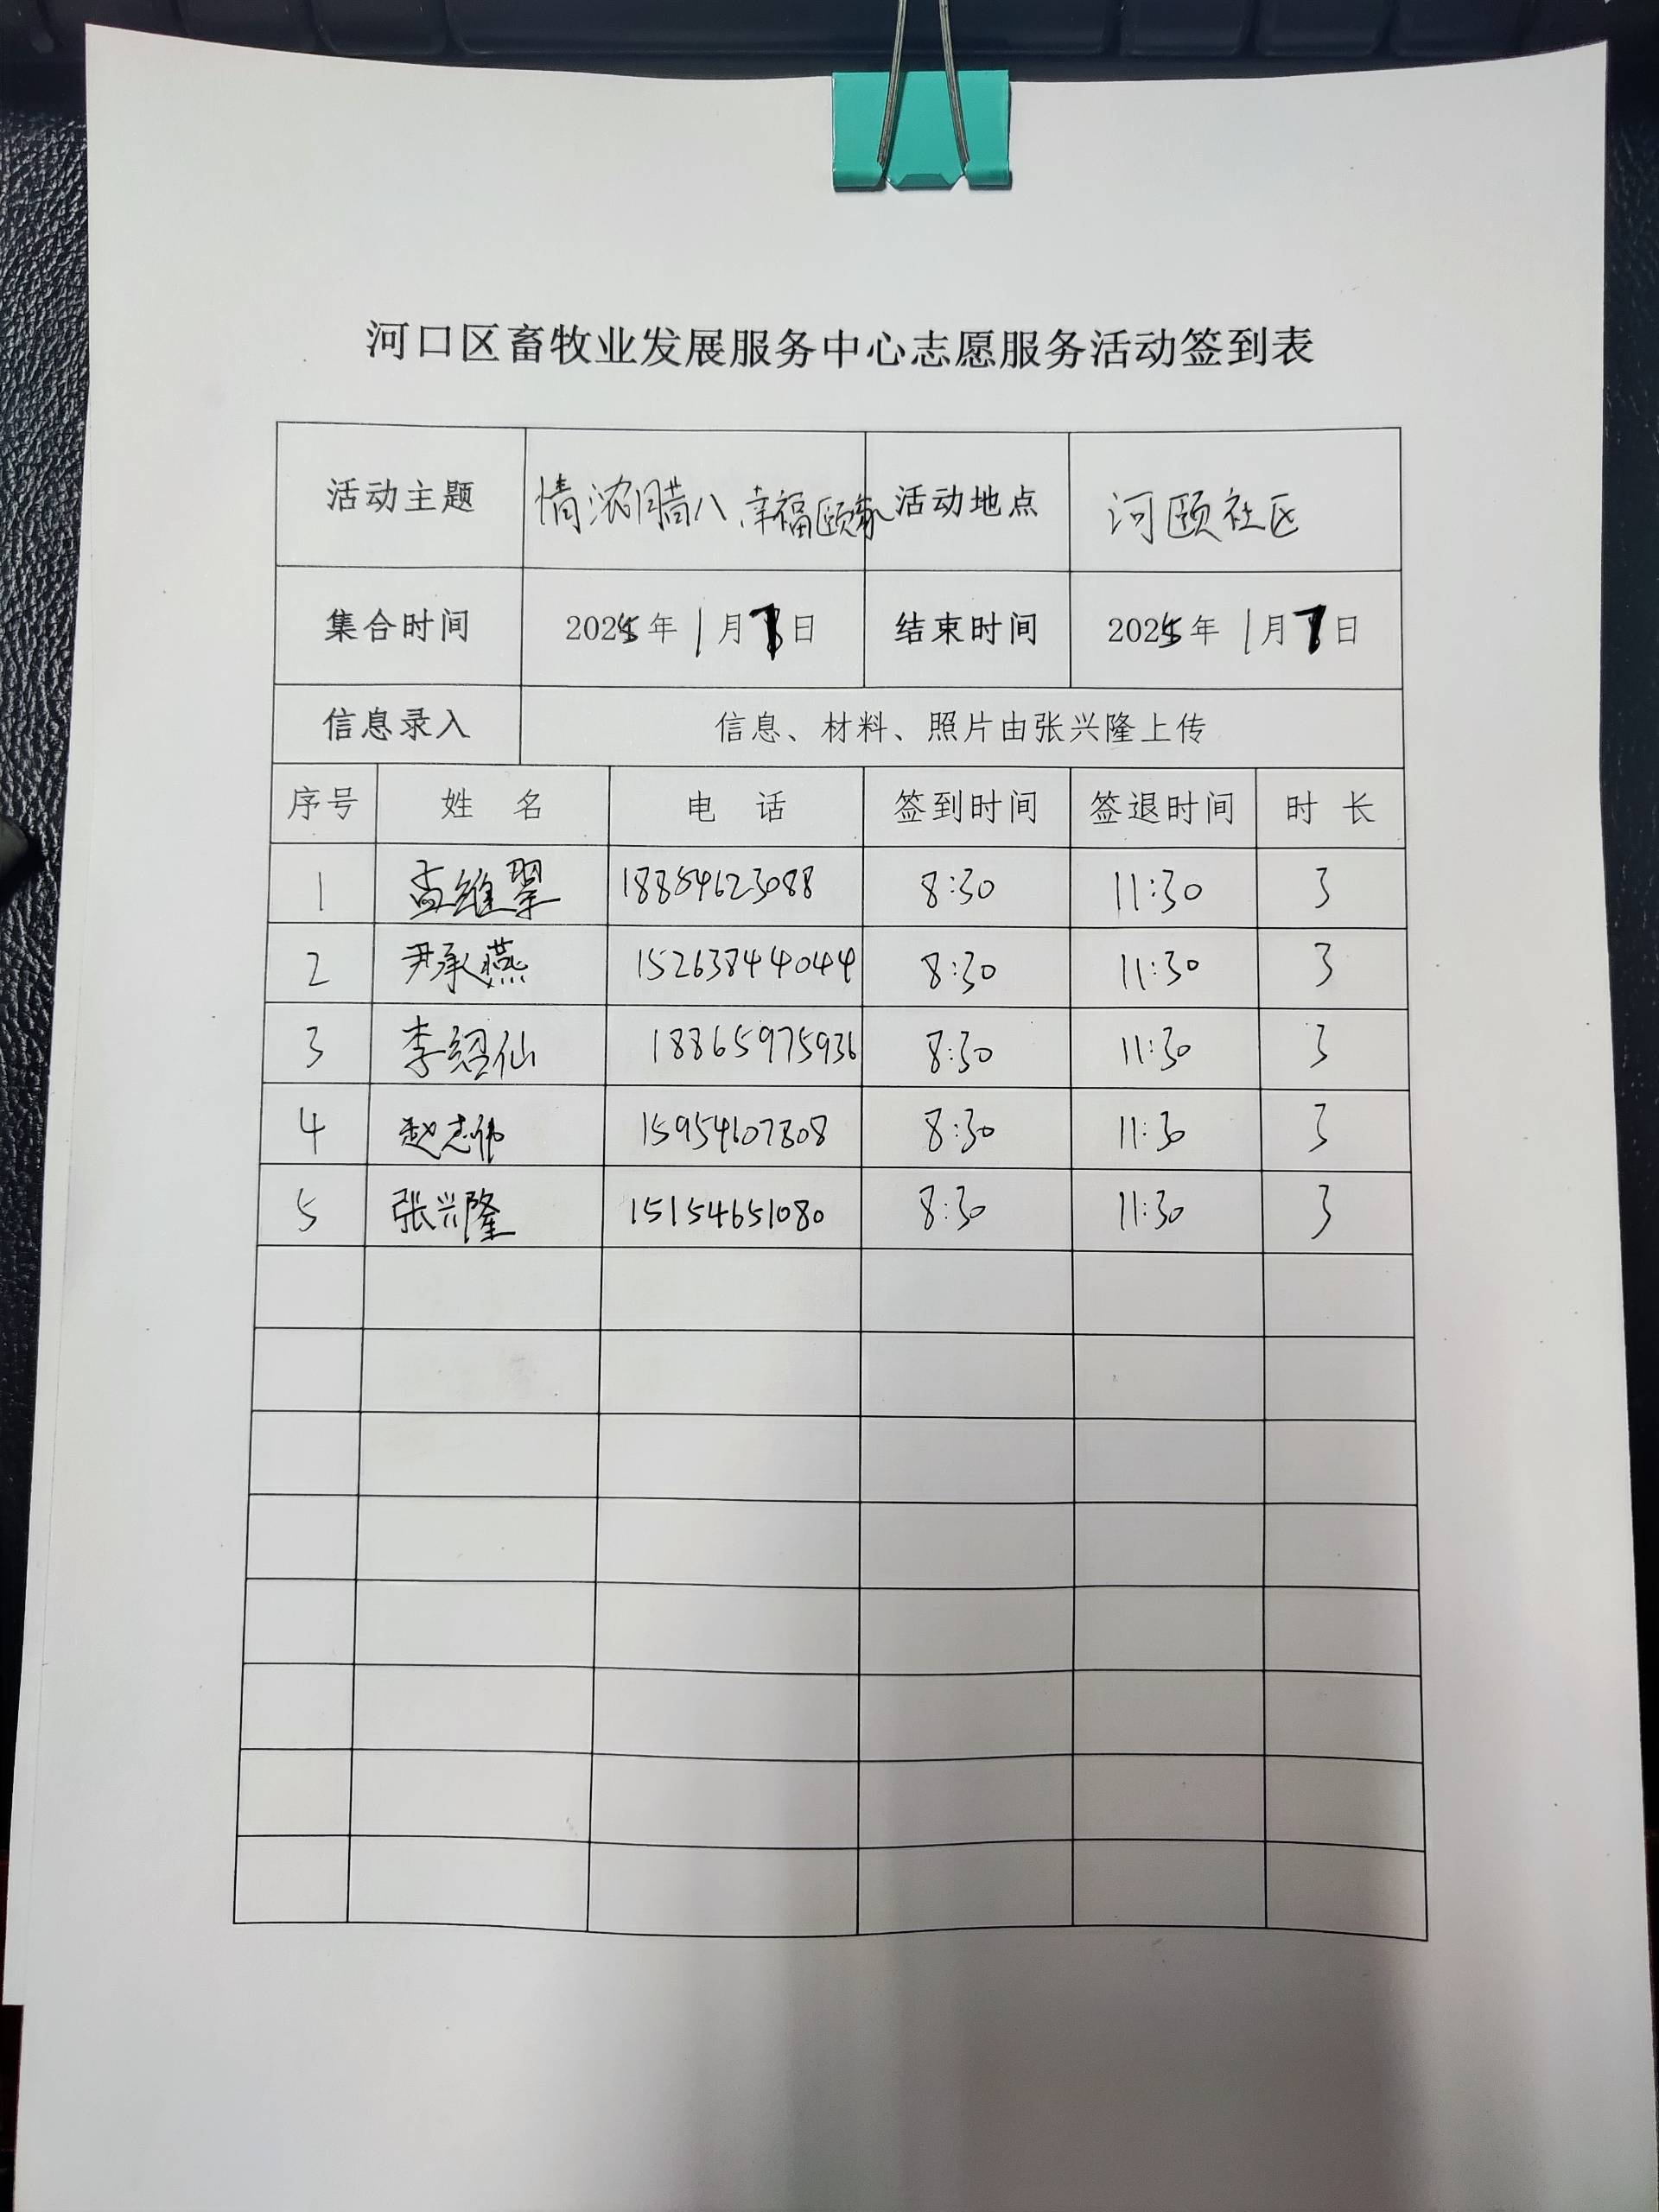 河口区畜牧业发展服务中心志愿服务活动签到表
活动主题 情浓腊八、幸福颐家 活动地点 河颐社区
集合时间 2025年1月7日 结束时间 2025年1月7日
信息录入 信息、材料、照片由张兴隆上传
序号 姓 名 电 话 签到时间 签退时间 时 长
1 孟维翠 18854623088 8:30 11:30 3
2 尹承燕 15263844044 8:30 11:30 3
3 李绍仙 18865975936 8:30 11:30 3
4 赵志伟 15954607808 8:30 11:30 3
5 张兴隆 15154651080 8:30 11:30 3